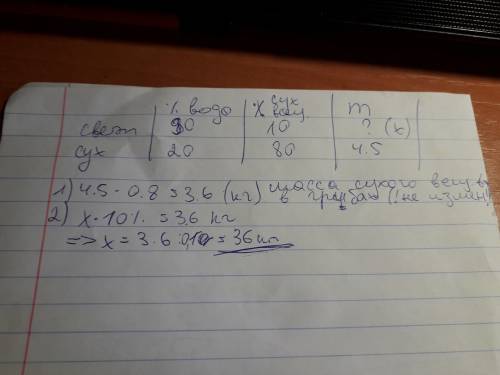 % водо % сух вещ. m
свеж 90 10 ? (x)
сух 20 80 4.5
1) 4.5 · 0.8 = 3.6 (кг) масса сухого вещ в
в грибах (не измен)
2) x · 10% = 3,6 кг
=> x = 3.6 : 0,10 = 36 кг